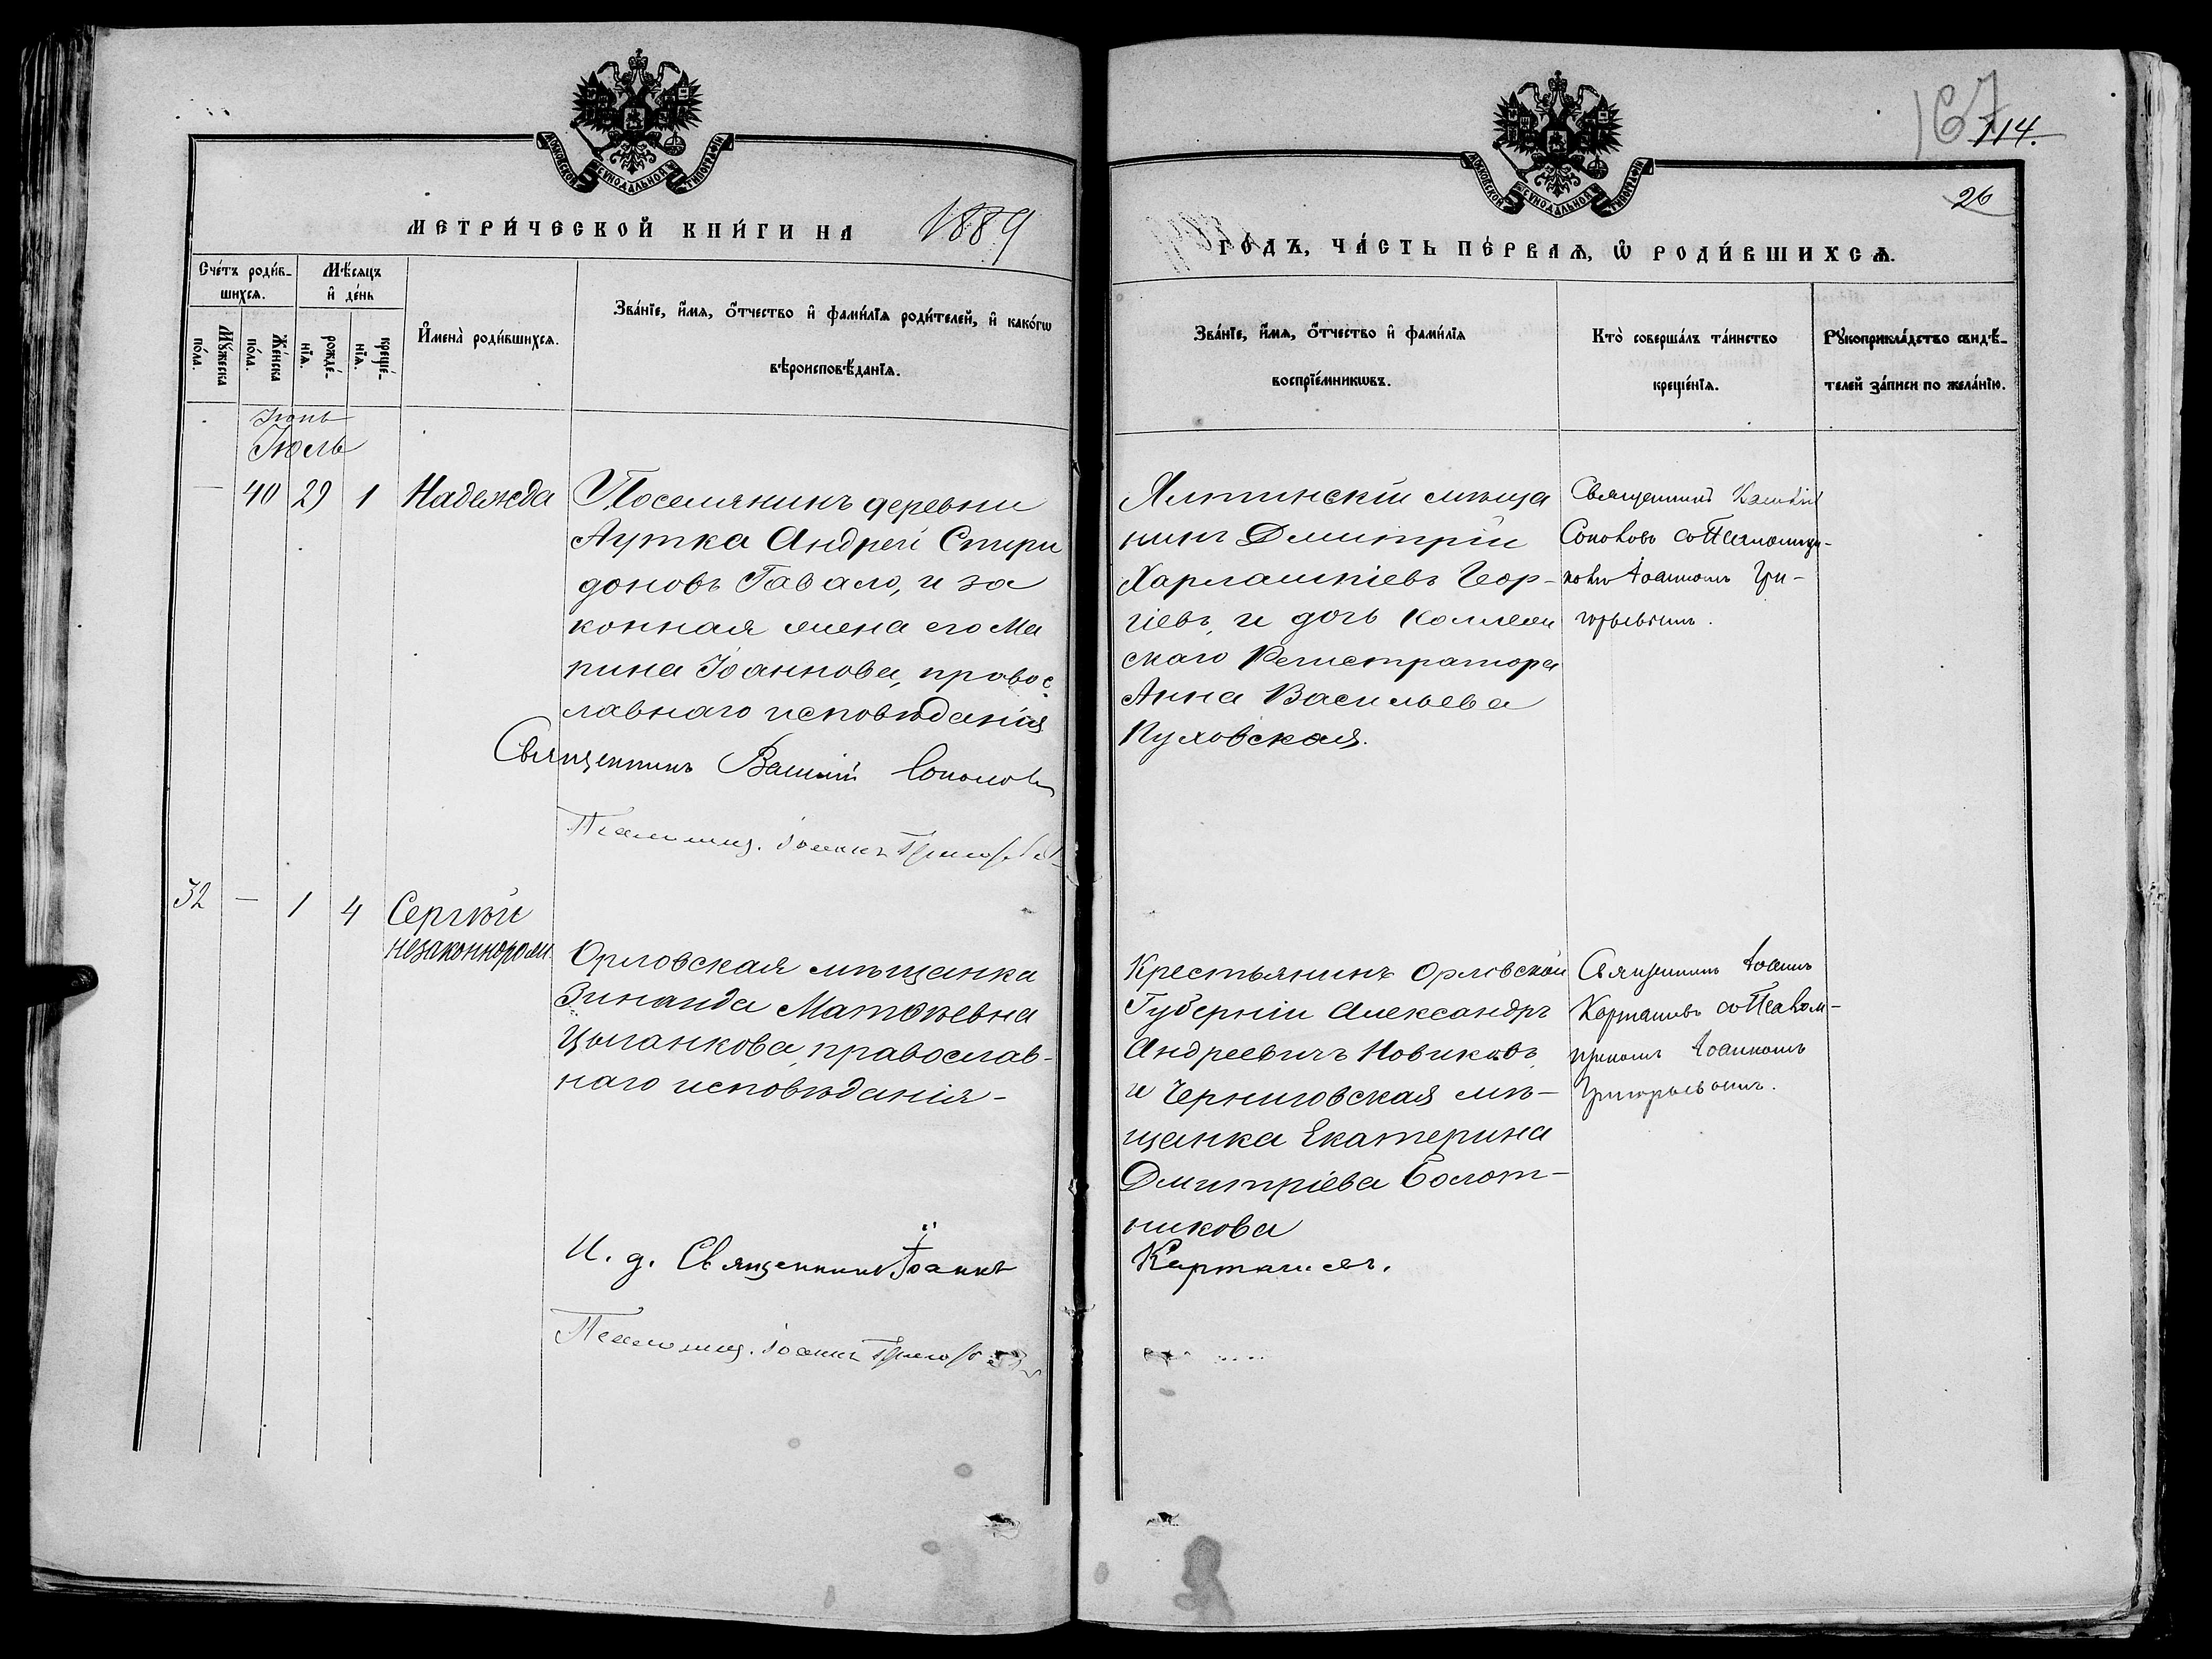 167
114.
26
МОСКОВСКОЙ СУНОДАЛЬНОЙ ТИПОГРАФІИ
МЕТРИ́ЧЕСКОЙ КНИ́ГИ НА 1889
МОСКОВСКОЙ СУНОДАЛЬНОЙ ТИПОГРАФІИ
ГО́ДЪ, ЧА́СТЬ ПЕ́РВАѦ, Ѡ҆ РОДИ́ВШИХСѦ.
Сче́тъ роди́в-
шихсѧ.
Мꙋ́жеска
по́ла.
Же́нска
по́ла.
Мѣ́сѧцъ
и҆ де́нь
рожде́-
нїѧ.
креще́-
нїѧ.
И҆мена̀ роди́вшихсѧ.
Зва́нїе, и҆́мѧ, ѻ҆́тчество и҆ фами́лїѧ роди́телей, и҆ како́гѡ
вѣроисповѣ́данїѧ.
Зва́нїе, и҆́мѧ, ѻ҆́тчество и҆ фами́лїѧ
воспрїе́мникѡвъ.
Кто̀ соверша́лъ та́инство
креще́нїѧ.
Рꙋкоприкла́дство свидѣ́-
телей за́писи по жела́нїю.
Іюнь
Іюль
— 40 29 1 Надежда
Поселянинъ деревни
Аутка Андрей Спири
доновъ Гавало, и за
конная жена его Ма
рина Іоаннова, правос
лавнаго исповѣданія
Священникъ Василій Соколовъ
Псаломщ. Іоаннъ
Ялтинскій мѣща
нинъ Дмитрій
Харлампіевъ Геор-
гіевъ, и дочь коллеж
скаго Регистратора
Анна Васильева
Пуховская.
Священникъ Василій
Соколовъ со Псаломщи-
комъ Іоанномъ Гри-
горьевымъ.
32 — 1 4 Сергѣй
незаконнорож.
Орловская мѣщанка
Зинаида Матѳѣевна
Цыганкова, православ-
наго исповѣданія-
И. д. Священника Іоаннъ
Карташевъ.
Псаломщ. Іоаннъ
Крестьянинъ Орловской
Губерніи Александръ
Андреевичъ Новиковъ
и Черниговская мѣ-
щанка Екатерина
Дмитріева Болот-
никова
Священникъ Іоаннъ
Карташевъ со Псалом-
щикомъ Іоанномъ
Григорьевымъ.